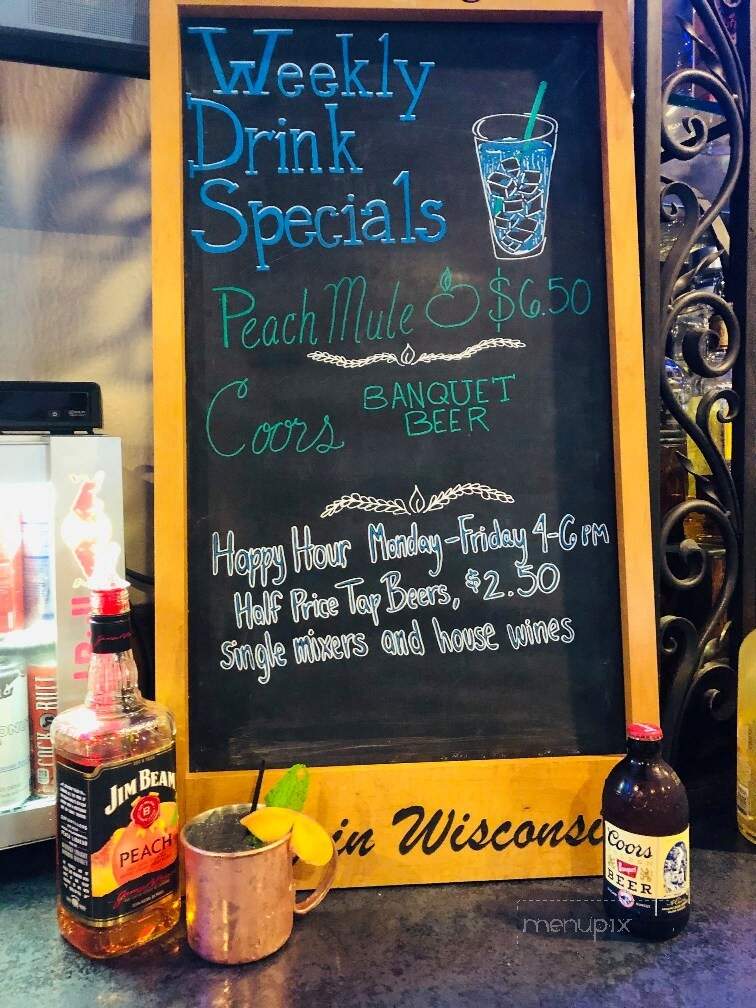 Weekly
Drink
Specials
Peach Mule $6.50
Coors BANQUET
BEER
Happy Hour Monday-Friday 4-6 PM
Half Price Tap Beers, $2.50
single mixers and house wines
in Wisconsi
JIM BEAM
PEACH
Coors
Banquet
BEER
menupix